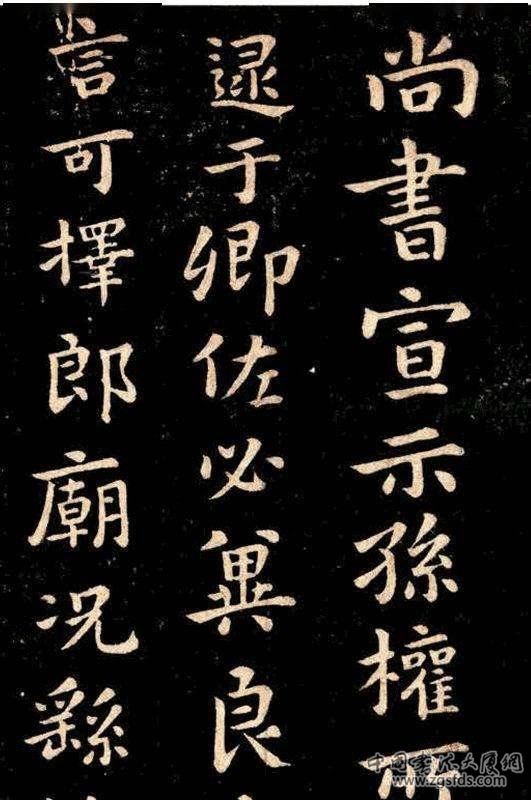 尚書宣示孫權
逮于卿佐必冀良
言可擇郎廟況繇
www.zgsfds.com